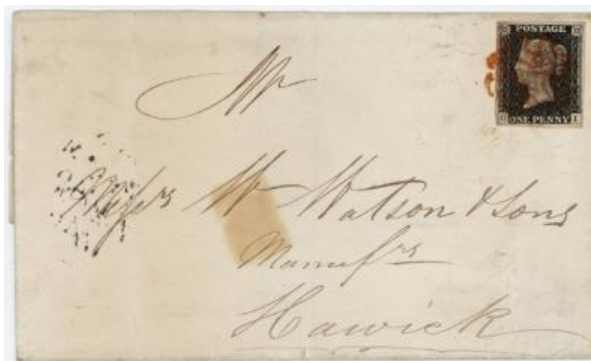 POSTAGE
ONE PENNY
Messrs W Watson & Sons
Manufrs
Hawick